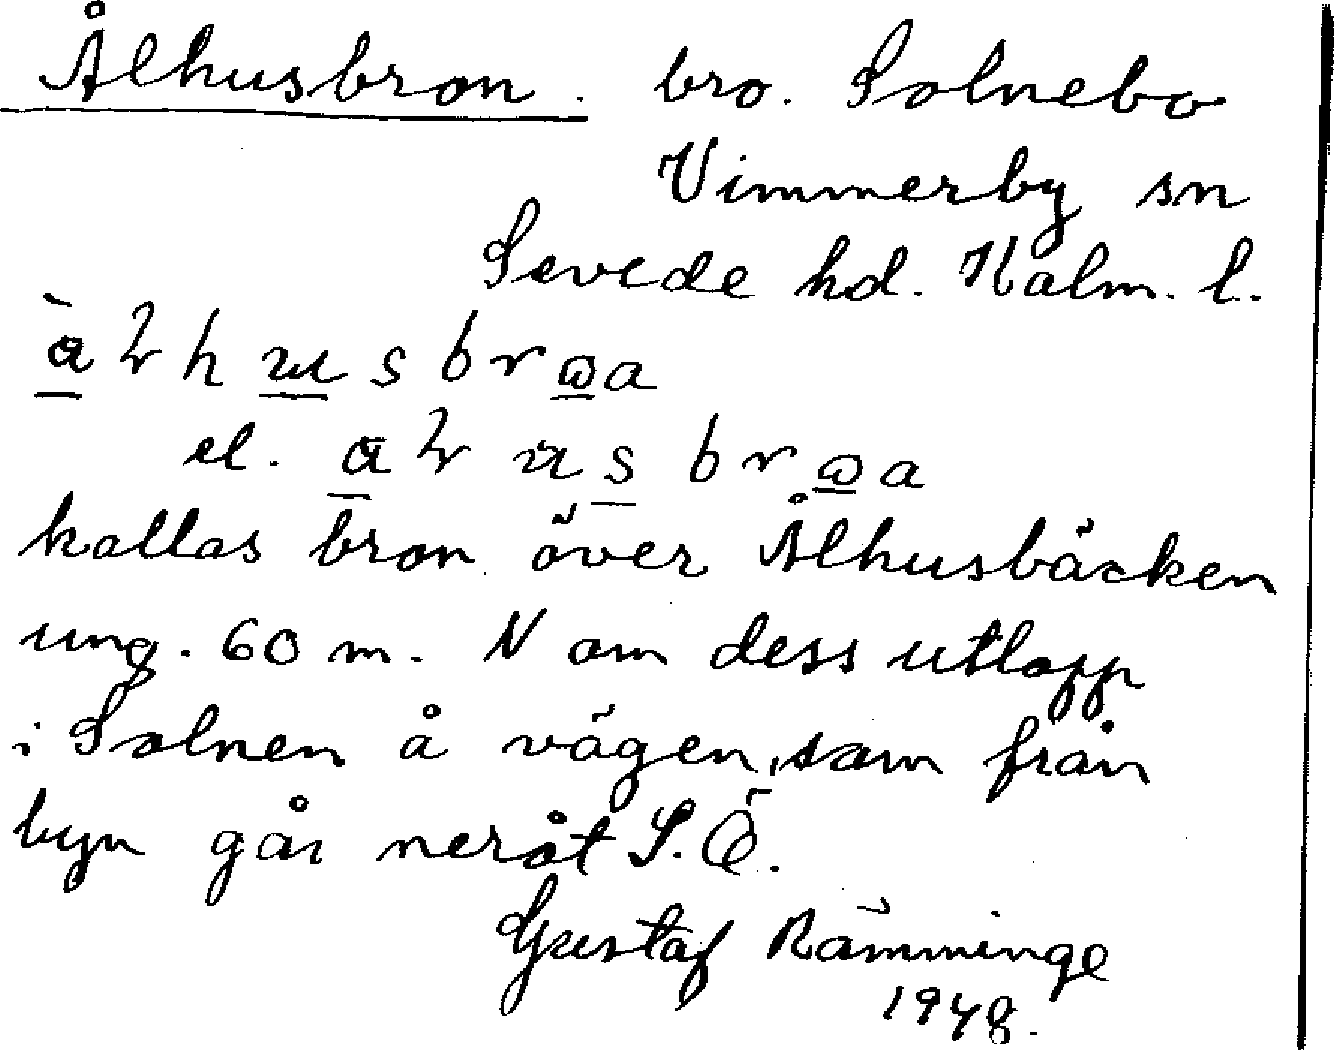 Ålhusbron. bro. Solnebo
Vimmerby sn
Sevede hd. Kalm. l.
kallas bron över Ålhusbäcken
ung. 60 m. N om dess utlopp
i Solnen å vägen, som från
byn går neråt S.Ö.
Gustaf Rämminge
1948.